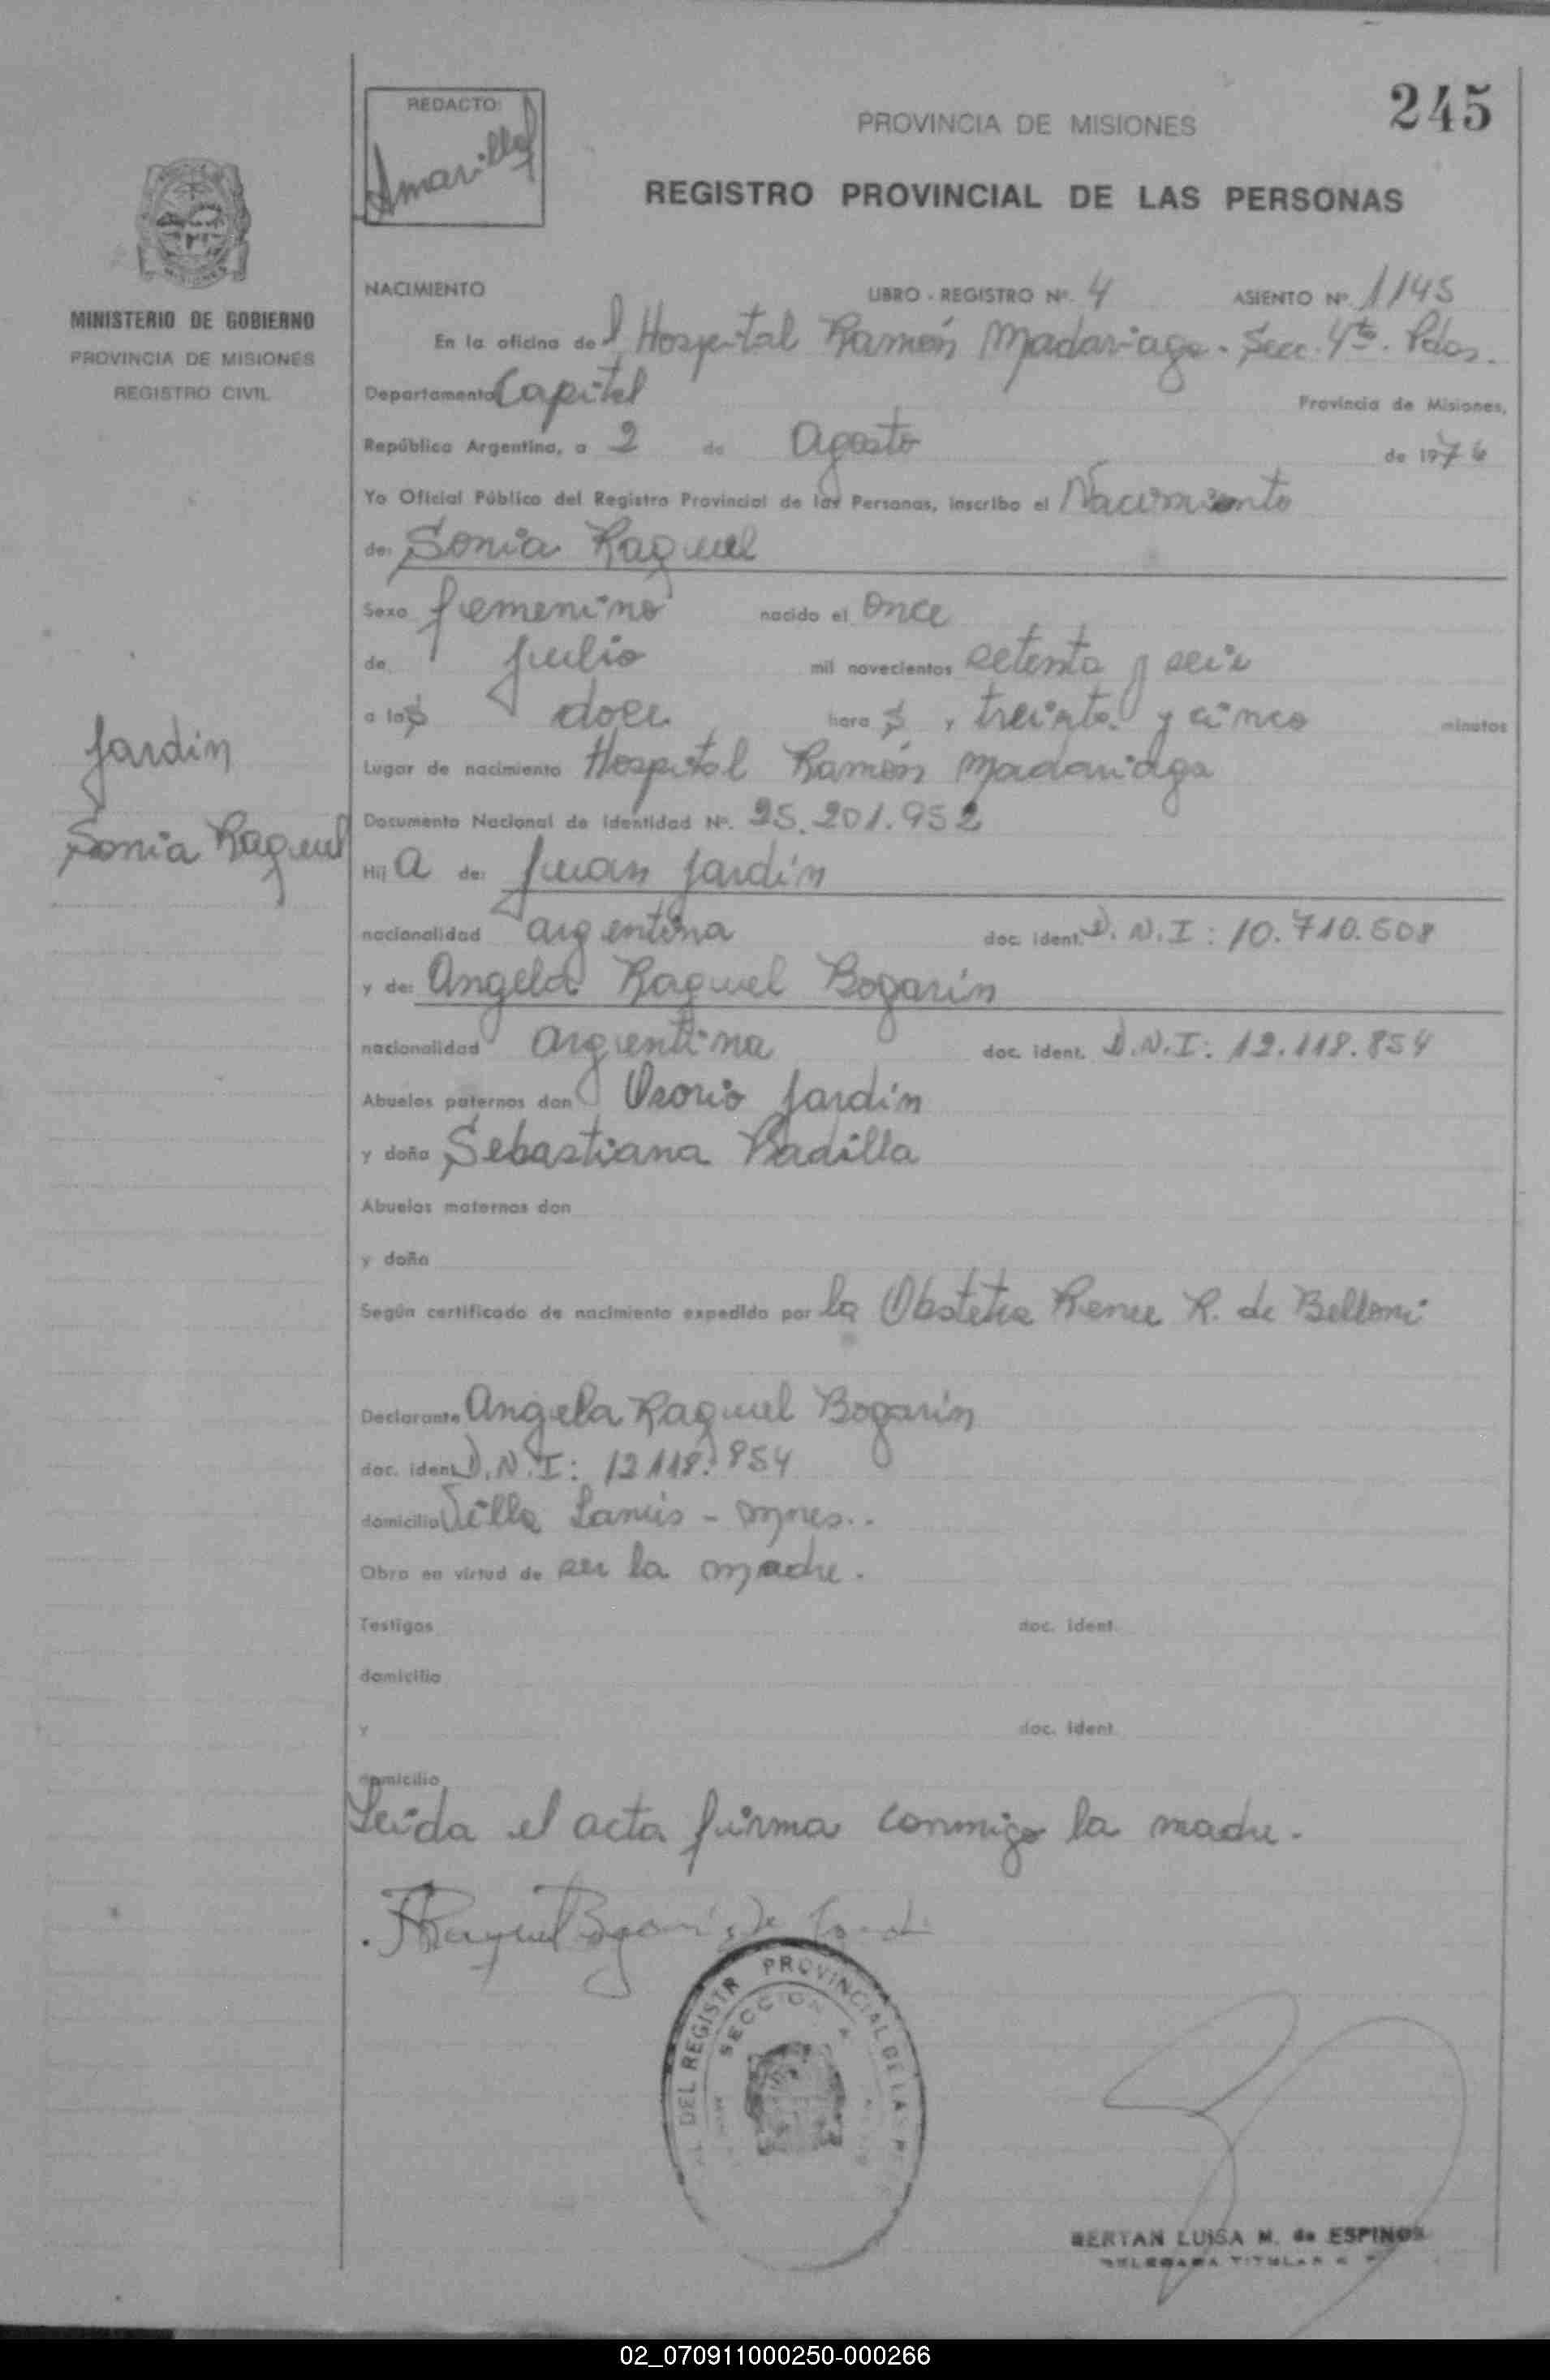 245
REDACTO:
Amarilla
PROVINCIA DE MISIONES
REGISTRO PROVINCIAL DE LAS PERSONAS
MISIONES
MINISTERIO DE GOBIERNO
PROVINCIA DE MISIONES
REGISTRO CIVIL
NACIMIENTO LIBRO - REGISTRO Nº. 4 ASIENTO Nº. 1145
En la oficina del Hospital Ramón Madariaga - Secc. 4ta. Pdas.
Departamento Capital Provincia de Misiones,
República Argentina, a 2 de Agosto de 1976
Yo Oficial Público del Registro Provincial de las Personas, inscribo el Nacimiento
de: Sonia Raquel
Sexo femenino nacido el once
de julio mil novecientos setenta y seis
a las doce horas y treinta y cinco minutos
Jardin
Lugar de nacimiento Hospital Ramón Madariaga
Documento Nacional de Identidad Nº. 25.201.952
Sonia Raquel
Hij a de: Juan Jardín
nacionalidad argentina doc. ident. D.N.I: 10.710.508
y de: Angela Raquel Bogarín
nacionalidad argentina doc. ident. D.N.I: 12.118.854
Abuelos paternos don Osorio Jardín
y doña Sebastiana Padilla
Abuelos maternos don
y doña
Según certificado de nacimiento expedido por la Obstetra Renee R. de Belloni
Declarante Angela Raquel Bogarín
doc. ident. D.N.I: 12.118.854
domicilio Villa Lanús - Mnes..
Obra en virtud de ser la madre.
Testigos doc. ident.
domicilio
y doc. ident.
domicilio
Leída el acta firma conmigo la madre.
DEL REGISTR PROVINCIAL DE LAS
SECCION
BERTAN LUISA M. de ESPINOS
DELEGADA TITULAR
02_070911000250-000266